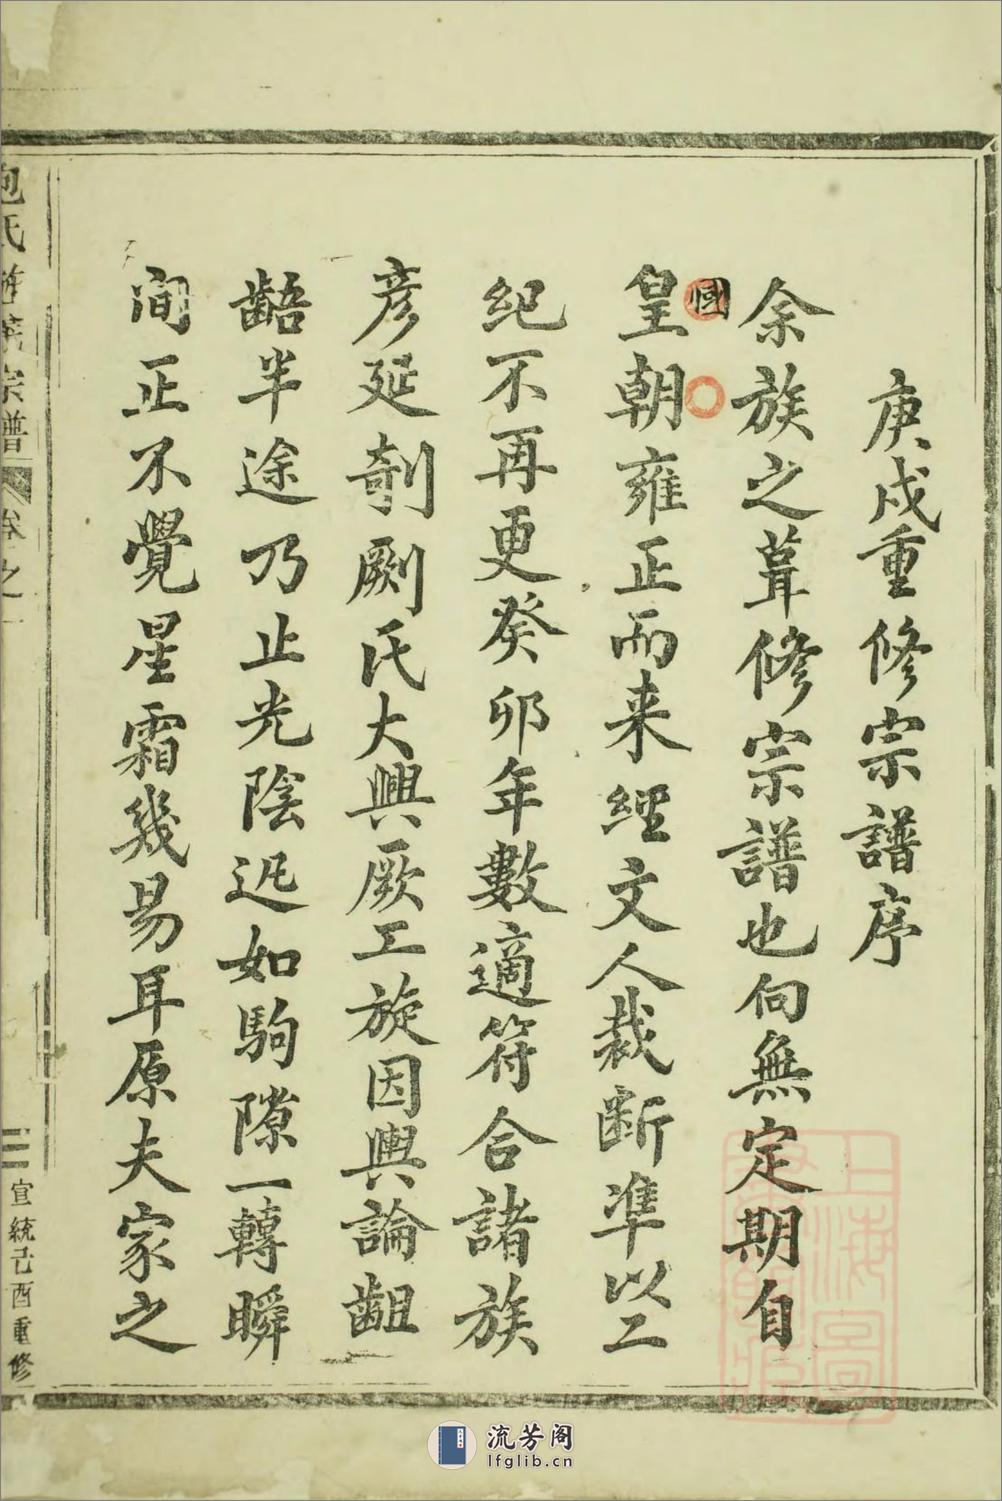 庚戌重修宗譜序
余族之葺修宗譜也向無定期自
國
皇朝雍正而来經文人裁断準以二
紀不再更癸卯年數適符合諸族
彦延剞劂氏大興厥工旋因輿論齟
齬半途乃止光陰迅如駒隙一轉瞬
间正不覺星霜幾易耳原夫家之
氏
宗譜
卷之一
宣統己酉重修
上海圖
流芳阁
lfglib.cn